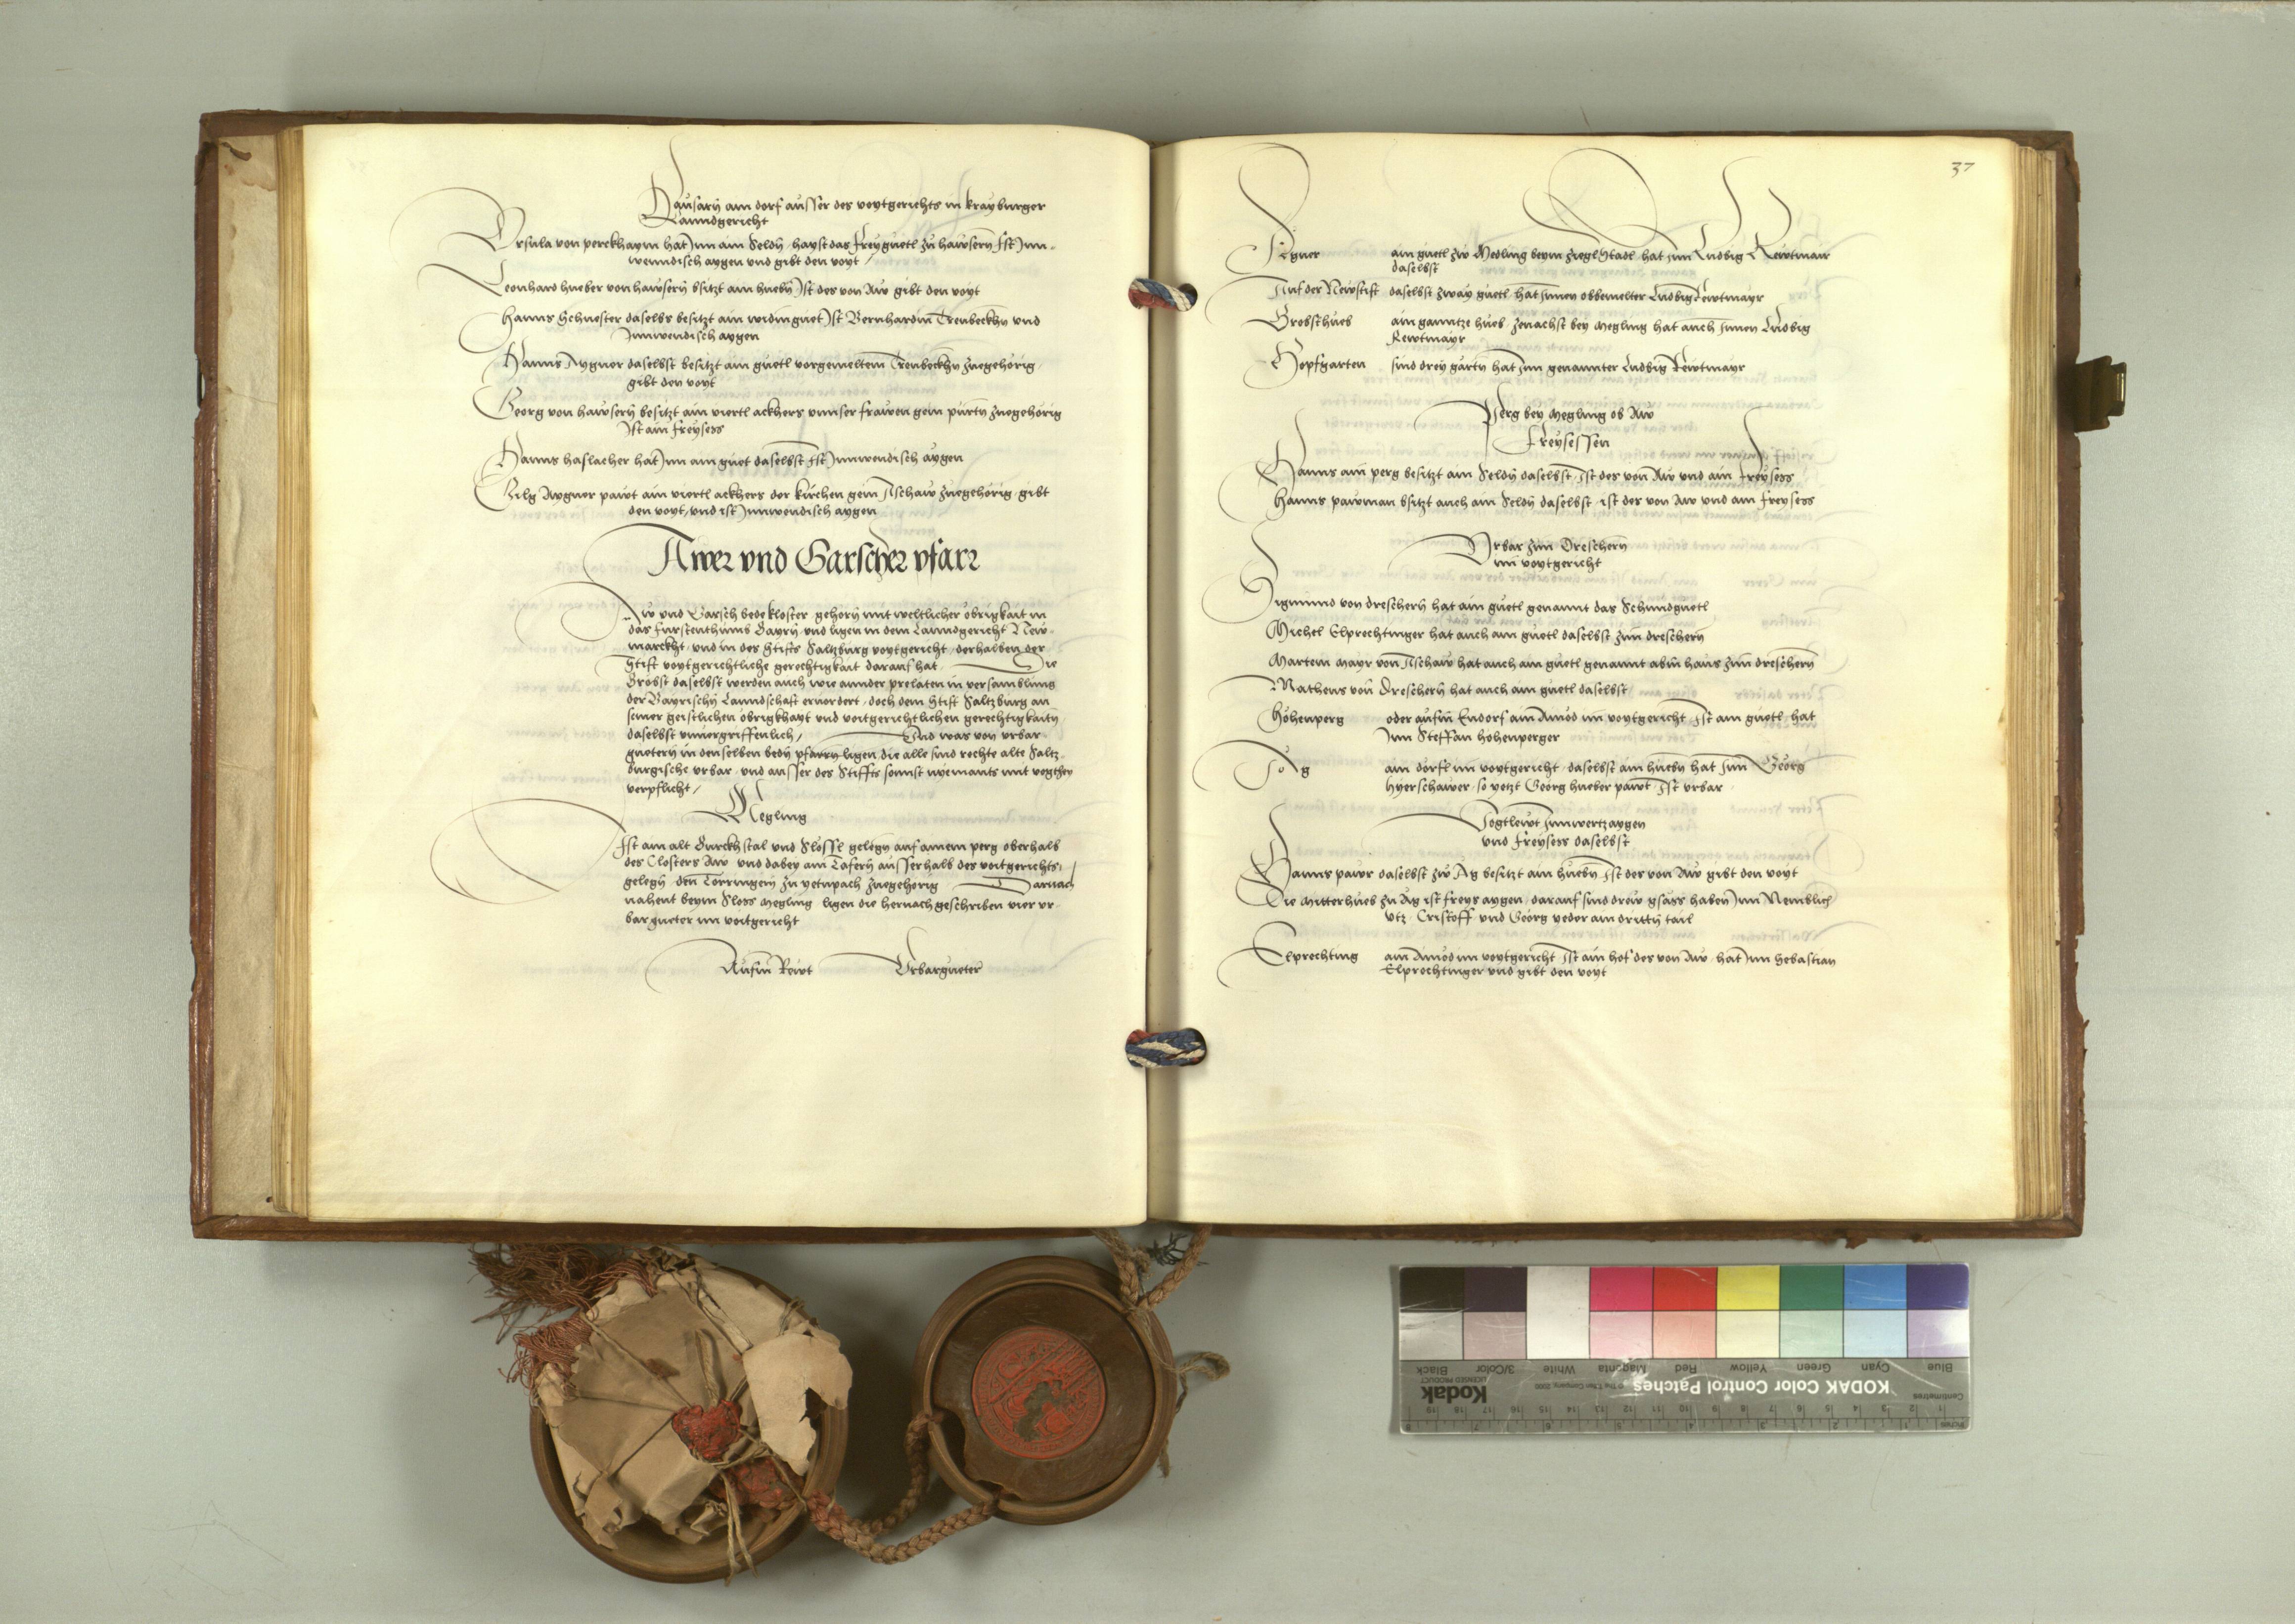 Hausarn am dorf ausser des voytgerichts in krayburger
Lanndgericht
Ursula von perckhaym hat Inn ain Seldn hayst das freyguetl zu hawsern Ist Inn-
wenndisch aygen und gibt den voyt
Leonhard hueber von hawsern bsitzt ain huebn Ist des von Aw gibt den voyt
Hanns Schuester daselbs besitzt ain widmguet Ist Bernhardin Trenbeckhn und
Innwendisch aygen
Hanns Aygner daselbst besitzt ain guetl vorgemeltem Trenbeckhn zuegehörig
gibt den voyt
Georg von hawsern besitzt ain viertl ackhers unnser frawen gein purtn zuegehörig
Ist ain freysess
Hanns haslacher hat Inn ain guet daselbst Ist Innwendisch aygen
Gilg Aygner pawt ain viertl ackhers der kirchen gein Aschaw zuegehörig gibt
den voyt, und ist Innwendisch aygen
Awer vnd Garscher pfarr
Aw und Garsch bede kloster gehörn mit weltlicher obrigkait in
das furstenthumb Bayrn und ligen in dem Lanndgericht New-
marckht, und in des Stifts Saltzburg voytgericht, derhalben der
Stift voytgerichtliche gerechtigkait darauf hat Die
Brobst daselbst werden auch wie annder prelaten in versamblung
der Bayrischn Lanndschaft ervordert, doch dem Stift Saltzburg an
seiner geistlichen obrigkhayt und voitgerichtlichen gerechtigkaitn
daselbst unvergriffenlich, Und was von urbar-
guetern in denselben bedn pfarrn ligen die alle sind rechte alte Saltz-
burgische urbar und ausser des Stiffts sonnst nyemants mit vogthey
verpflicht,
Megling
Ist ain alt Burckhstal und Slossl gelegn auf ainem perg oberhalb
des Closters Aw und dabey ain Tafern ausserhalb des voitgerichts
gelegn, den Törringern zu yetnpach zuegehörig Darnach
nahent beym Sloss Megling ligen die hernach geschriben vier ur-
bargueter im voitgericht
Aufm Rewt Urbargueter
37
Aigner ain guetl zw Medling beym ziegl Stadl hat Inn Ludbig Rewtmair
daselbst
Auf der Newstift daselbst zway guetl hat Innen obbemelter Ludbig Rewtmayr
Brobsthueb ain ganntze hueb zenachst bey Megling hat auch Innen Ludbig
Rewtmayr
Hopfgarten sind drey gärtn hat Inn genannter Ludbig Rewtmayr
Perg bey Megling ob Aw
Freysessen
Hanns am perg besitzt ain Seldn daselbst, Ist des von Aw und ain freysess
Hanns pawman bsitzt auch ain Seldn daselbst, ist des von Aw und ain freysess
Urbar zun Dreschern
im voytgericht
Sigmund von dreschern hat ain guetl genannt das Schmidguetl
Michel Elprechtinger hat auch ain guetl daselbst zun dreschern
Martein mayr von Aschaw hat auch ain guetl genannt abm haus zun dreschern
Matheus von Dreschern hat auch ain guetl daselbst
Hohenperg oder aufm Endorf ain Ainöd im voytgericht Ist ain guetl hat
Inn Steffan hohenperger
Ag ain dörfl im voytgericht, daselbst ain huebn hat Inn Georg
hyerschawer, so yetzt Georg hueber pawt Ist urbar
Vogtlewt Innwertzaygen
und Freysess daselbst
Hanns pawr daselbst zw Ag besitzt ain huebn Ist der von Aw gibt den voyt
Die Mitterhueb zu Ag ist freys aygen, darauf sind drew gsäss haben Inn Nemblich
Utz, Cristoff und Georg yeder ain drittn tail
Elprechting ain Ainöd im voytgericht Ist ain hof des von Aw, hat Inn Sebastian
Elprechtinger und gibt den voyt
KODAK Color Control Patches
Kodak
LICENSED PRODUCT
Blue
Cyan
Green
Yellow
Red
Magenta
White
3/Color
Black
Centimetres
Inches